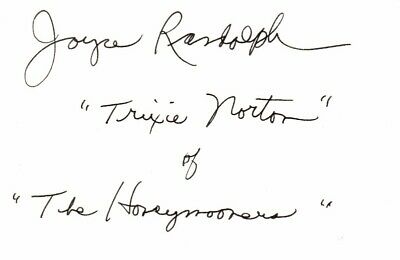 Joyce Randolph
"Trixie Norton"
of
"The Honeymooners"